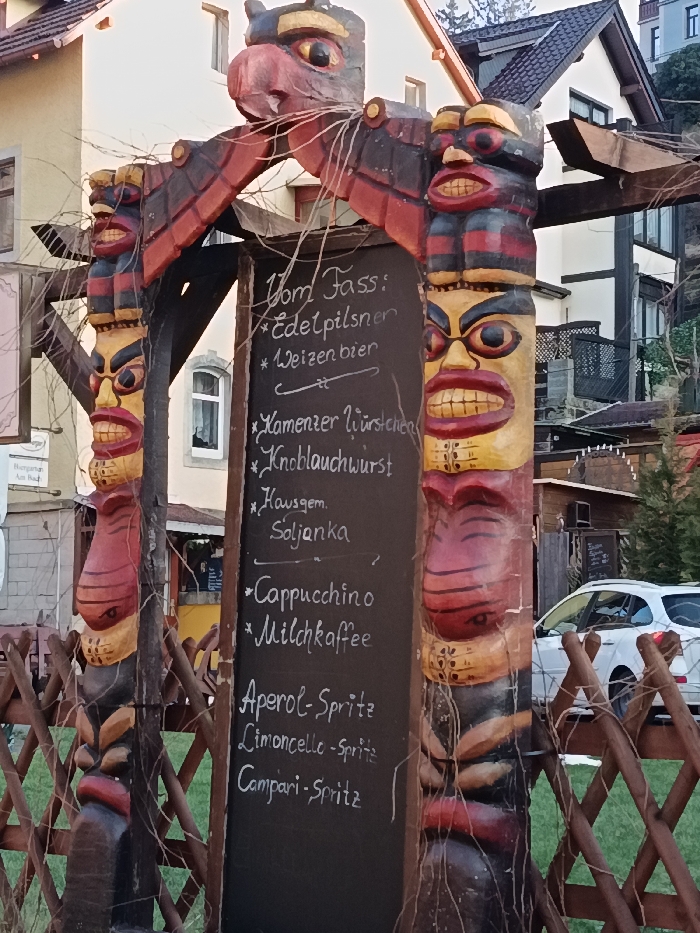 Vom Fass:
* Edelpilsner
* Weizenbier
* Kamenzer Würstchen
* Knoblauchwurst
* Hausgem.
Soljanka
* Cappucchino
* Milchkaffee
Aperol-Spritz
Limoncello-Spritz
Campari-Spritz
Am Bach